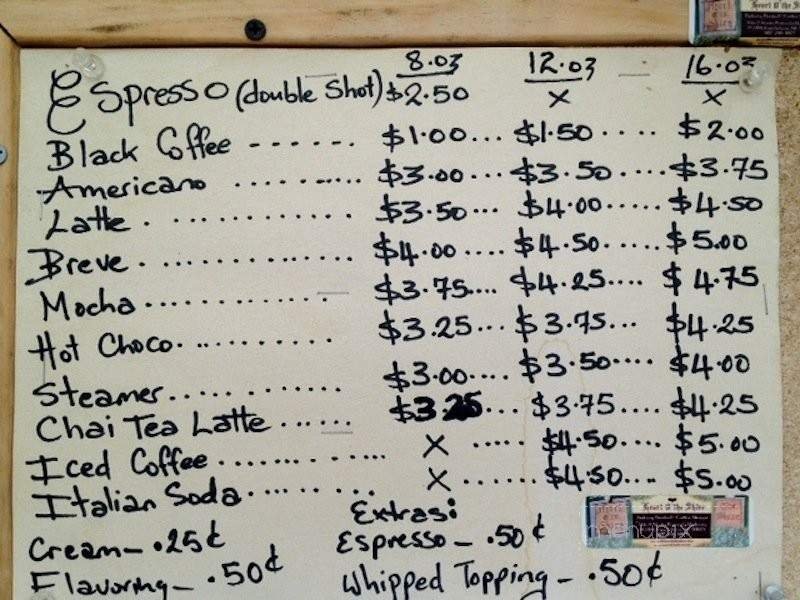 8.oz 12.oz 16.oz
Espresso (double shot) $2.50 x x
Black Coffee ------ $1.00... $1.50.... $2.00
Americano ........... $3.00... $3.50....$3.75
Latte. ............ $3.50... $4.00..... $4.50
Breve. ............ $4.00.... $4.50.... $5.00
Mocha ............. $3.75.... $4.25.... $4.75
Hot Choco. .......... $3.25... $3.75... $4.25
Steamer............ $3.00.... $3.50.... $4.00
Chai Tea Latte ...... $3.25... $3.75.... $4.25
Iced Coffee .......... x ..... $4.50.... $5.00
Italian Soda......... x ...... $4.50.... $5.00
Extras:
Cream- .25¢ Espresso - .50¢
Flavoring - .50¢ Whipped Topping - .50¢
menupix